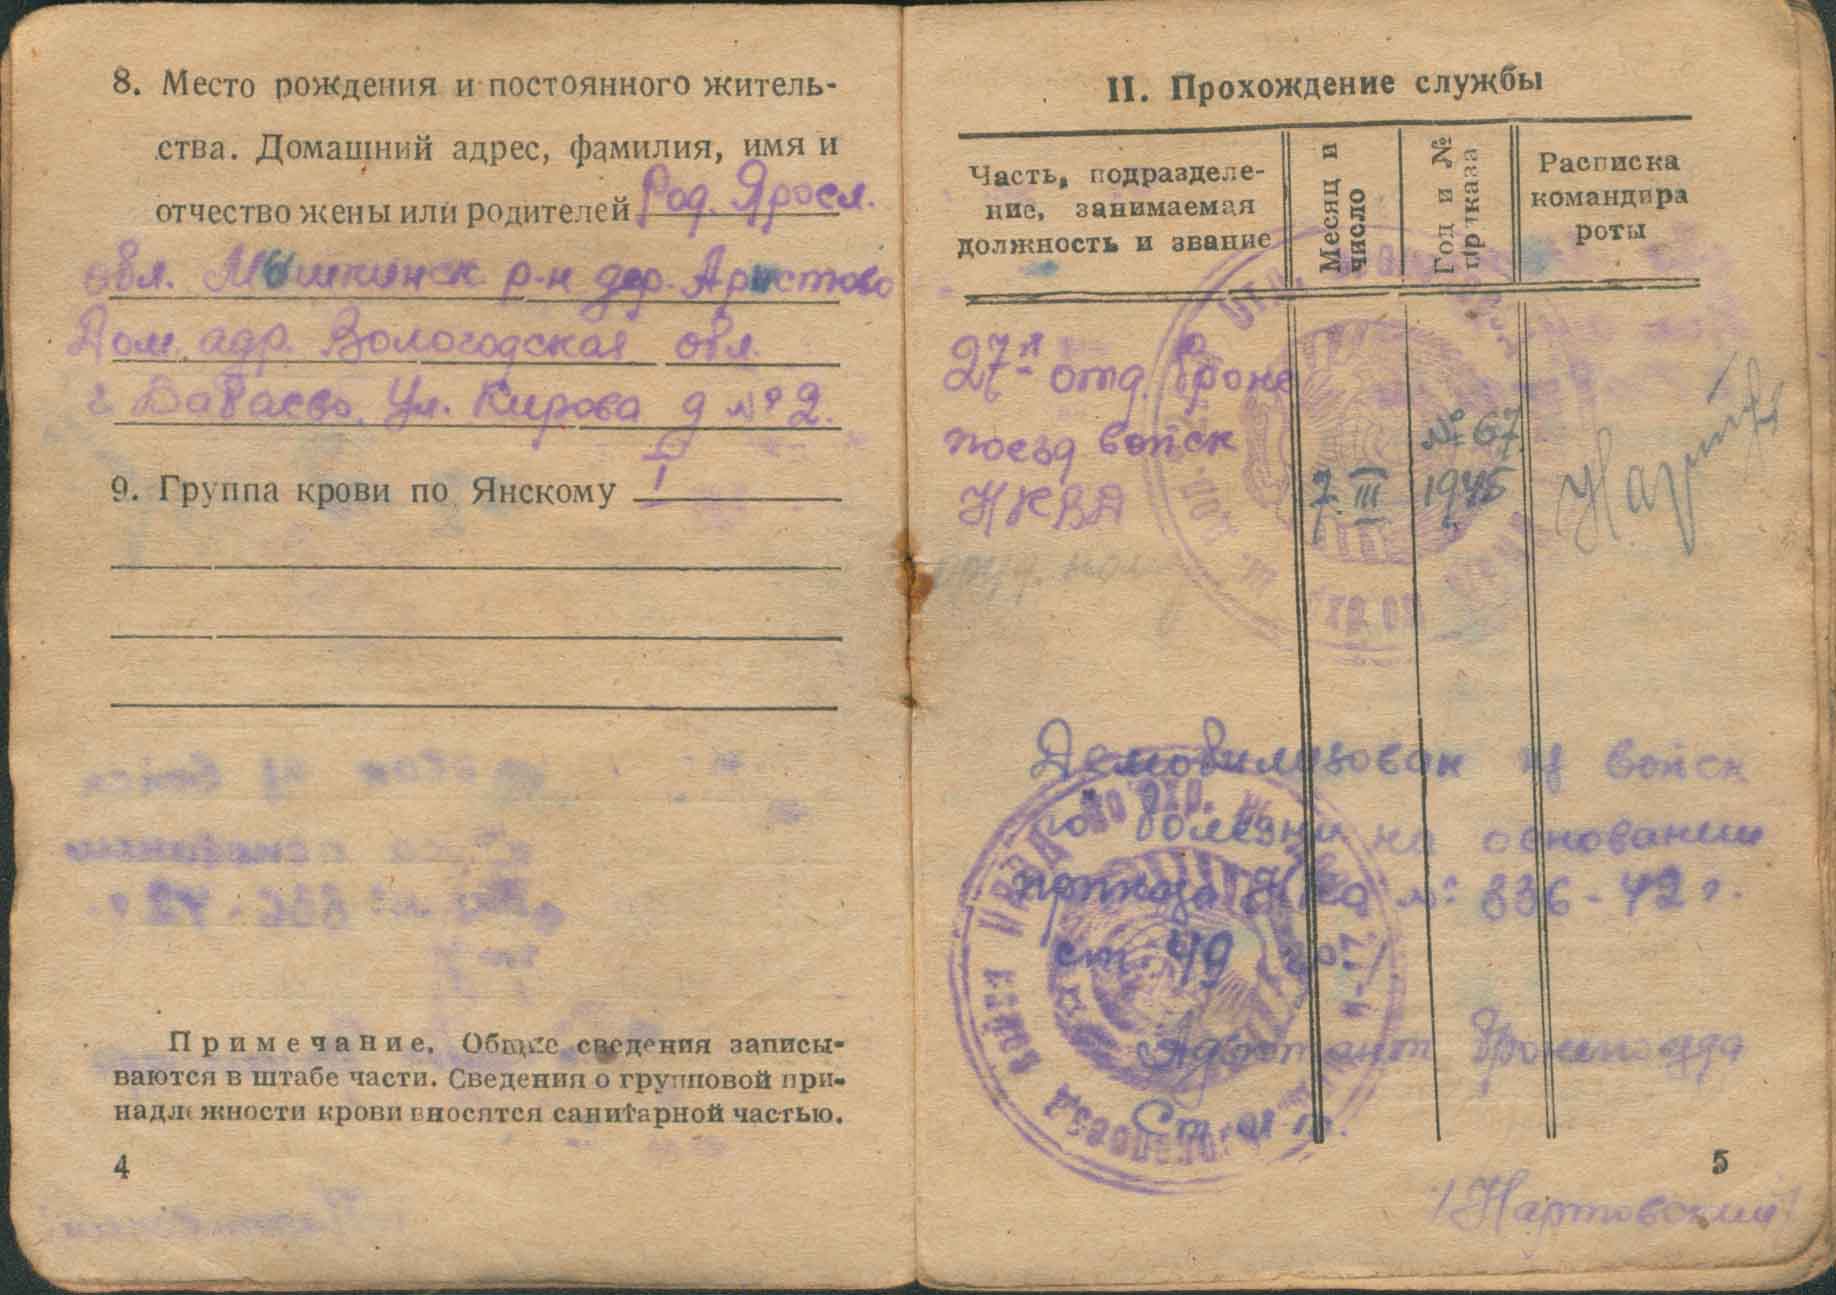 8. Место рождения и постоянного житель-
ства. Домашний адрес, фамилия, имя и
отчество жены или родителей Род. Яросл.
обл. Мышкинск р-н дер. Аристово
Дом. адр. Вологодская обл.
г. Бабаево. Ул. Кирова д №2.
9. Группа крови по Янскому I
Примечание. Общие сведения записы-
ваются в штабе части. Сведения о групповой при-
надлежности крови вносятся санитарной частью.
4
II. Прохождение службы
Часть, подразделе-
ние, занимаемая
должность и звание
Месяц и
число
Год и №
приказа
Расписка
командира
роты
27-й отд. броне
поезд войск
НКВД
7. III
№ 67
1945
Демобилизован из войск
по болезни на основании
приказа НКО №: 336-42 г.
ст. 49
Адъютант бронепоезда
Ст.
/Нартовский/
5